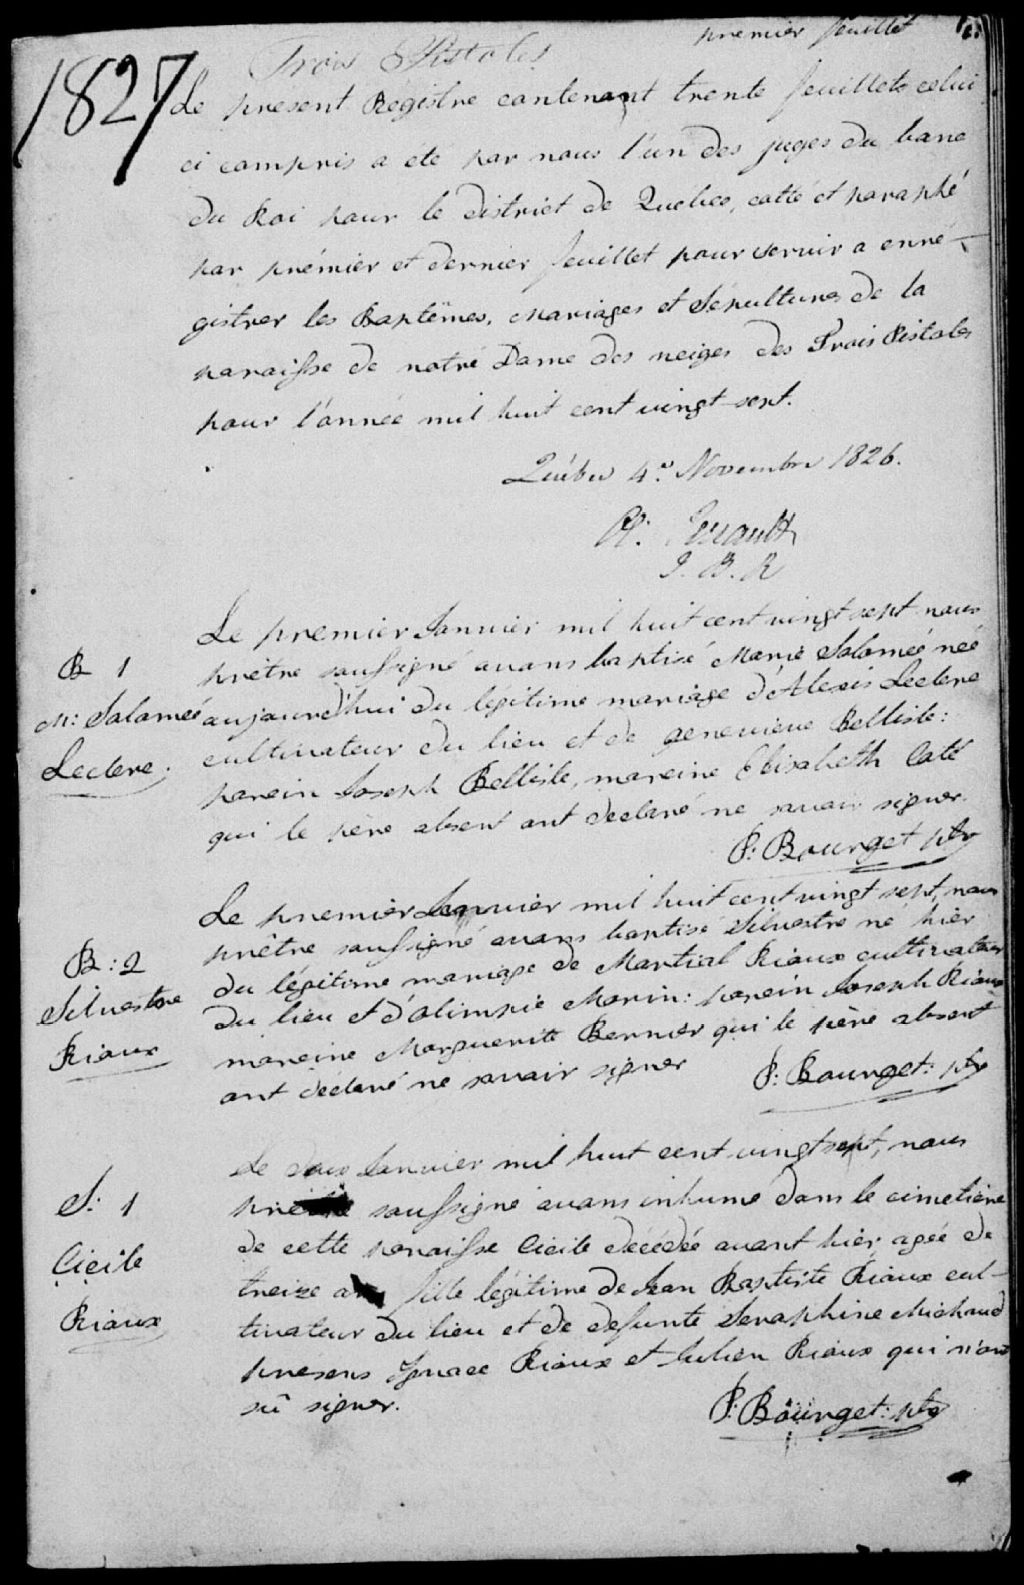 premier feuillet
1827
Trois Pistoles
Le present Régistre contenant trente feuillets celui
ci compris a eté par nous l'un des juges du banc
du Roi pour le district de Quebec, cotté et paraphé
par prémier et dernier feuillet pour servir a enré-
gistrer les Baptêmes, Mariages et Sépultures de la
paroisse de notre Dame des neiges des Trois Pistoles
pour l'année mil huit cent vingt-sept.
Québec 4e Novembre 1826.
Perrault
J. B. R
Le premier Janvier mil huit cent vingt sept nous
B 1
prêtre soussigné avons baptisé Marie Salomée née
M: Salomée
aujourd'hui du légitime mariage d'Alexis Leclerc
cultivateur du lieu et de genevieve Bellisle:
Leclerc.
parein Joseph Bellisle, mareine Elisabeth Coté
qui le père absent ont déclaré ne savoir signer.
P: Bourget ptr
Le premier Janvier mil huit cent vingt sept, nous
prêtre soussigné avons baptisé Silvestre né hier
B: 2
du légitime mariage de Martial Rioux cultivateur
Silvestre
du lieu et d'olimpie Morin: parein Joseph Rioux
Rioux
mareine Marguerite Bernier qui le père absent
ont déclaré ne savoir signer
P: Bourget: ptr
Le deux Janvier mil huit cent vingt sept, nous
S: 1
prêtre soussigné avons inhumé dans le cimetière
de cette paroisse Cicile décédée avant hier, agée de
Cicile
treize ans fille légitime de Jean Baptiste Rioux cul-
Rioux
tivateur du lieu et de defunte Seraphine Michaud
presens Ignace Rioux et Julien Rioux qui n'ont
sû signer.
P: Bourget: ptr